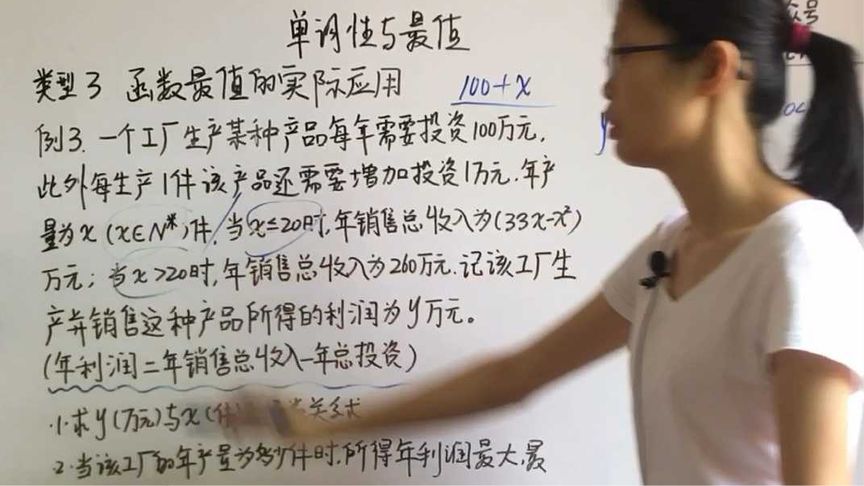 单调性与最值
类型3 函数最值的实际应用
100+x
例3.一个工厂生产某种产品每年需要投资100万元,
此外每生产1件该产品还需要增加投资1万元.年产
量为x(x∈N*)件.当x≤20时,年销售总收入为(33x-x²)
万元;当x>20时,年销售总收入为260万元.记该工厂生
产并销售这种产品所得的利润为y万元。
(年利润=年销售总收入-年总投资)
1.求y(万元)与x(件)关系式
2.当该工厂的年产量为多少件时,所得年利润最大,最
y
众号